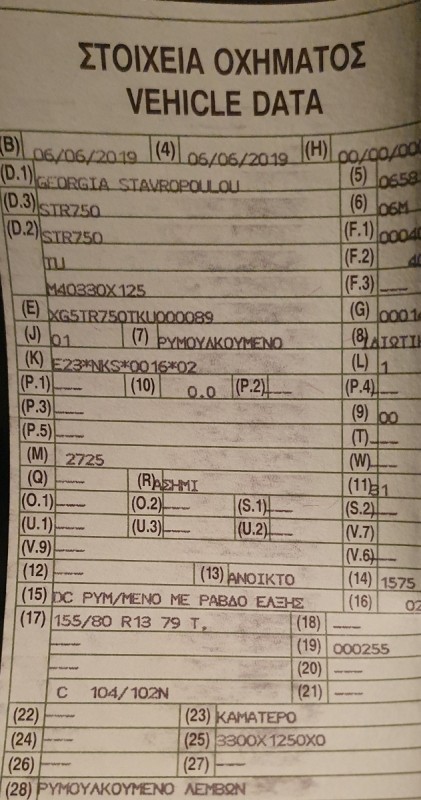 ΣΤΟΙΧΕΙΑ ΟΧΗΜΑΤΟΣ
VEHICLE DATA
(B) 06/06/2019 (4) 06/06/2019 (H) 00/00/00
(D.1) GEORGIA STAVROPOULOU (5) 0658
(D.3) STR750 (6) 06M
(D.2) STR750 (F.1) 0004
TU (F.2) 40
M40330X125 (F.3) ---
(E) XG5TR750TKU000089 (G) 0001
(J) 01 (7) ΡΥΜΟΥΛΚΟΥΜΕΝΟ (8) ΔΙΩΤΙ
(K) E23*NKS*0016*02 (L) 1
(P.1) --- (10) 0.0 (P.2) --- (P.4) ---
(P.3) --- (9) 00
(P.5) --- (T) ---
(M) 2725 (W) ---
(Q) --- (R) ΑΣΗΜΙ (11) 81
(O.1) --- (O.2) --- (S.1) --- (S.2) ---
(U.1) --- (U.3) --- (U.2) --- (V.7)
(V.9) --- (V.6) ---
(12) --- (13) ΑΝΟΙΚΤΟ (14) 1575
(15) DC ΡΥΜ/ΜΕΝΟ ΜΕ ΡΑΒΔΟ ΕΛΞΗΣ (16) 02
(17) 155/80 R13 79 T, (18) ---
--- (19) 000255
--- (20) ---
C 104/102N (21) ---
(22) --- (23) ΚΑΜΑΤΕΡΟ
(24) --- (25) 3300X1250X0
(26) --- (27) ---
(28) ΡΥΜΟΥΛΚΟΥΜΕΝΟ ΛΕΜΒΩΝ